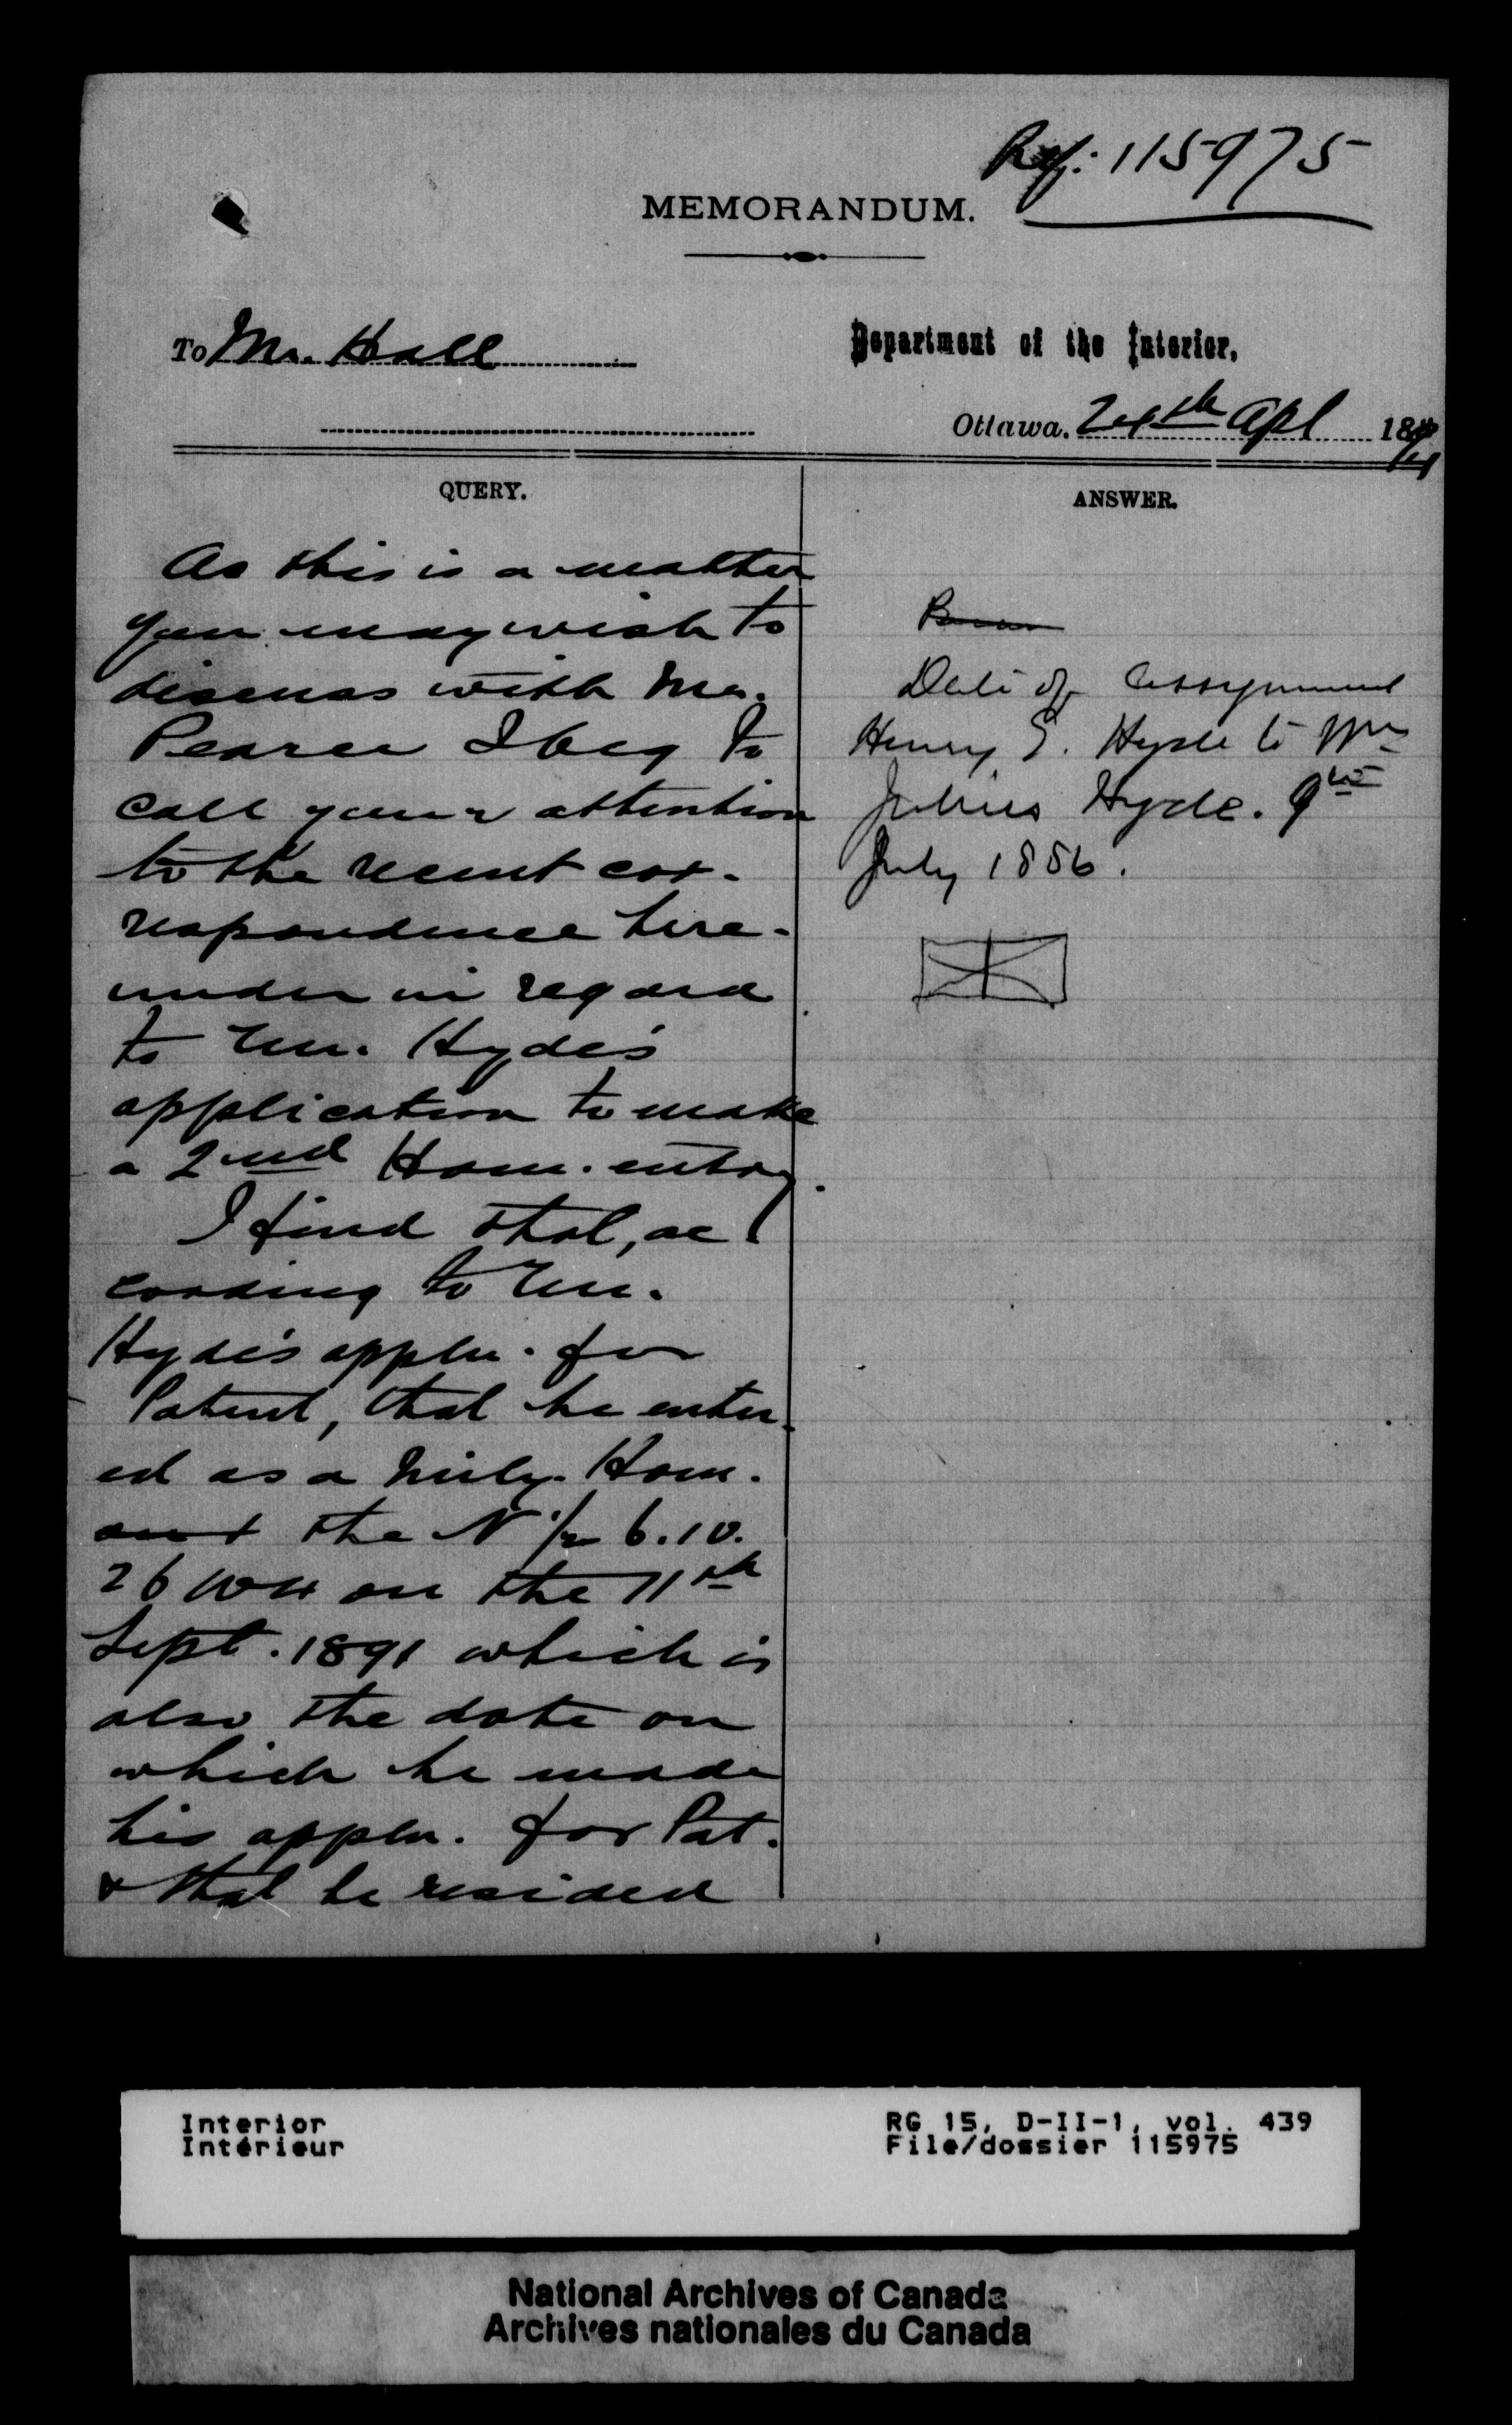 Ref: 115975
MEMORANDUM.
To Mr. Hall
Department of the Interior,
Ottawa, 24th Apl 18
QUERY.
As this is a matter
you may wish to
discuss with Mr.
Pearce I beg to
call your attention
to the recent cor-
respondence here-
under in regard
to Mr. Hyde's
application to make
a 2nd Hom. entry.
I find that, ac-
cording to Mr.
Hyde's appln. for
Patent, that he enter-
ed as a Mily. Hom.
the N 1/2 6.10.
26 W4 on the 11th
Sept. 1891 which is
also the date on
which he made
his appln. for Pat.
& that he resided
ANSWER.
Date of assignment
Henry E. Hyde to Wm
Julius Hyde. 9th
July 1886.
Interior
Intérieur
RG 15, D-II-1, vol. 439
File/dossier 115975
National Archives of Canada
Archives nationales du Canada